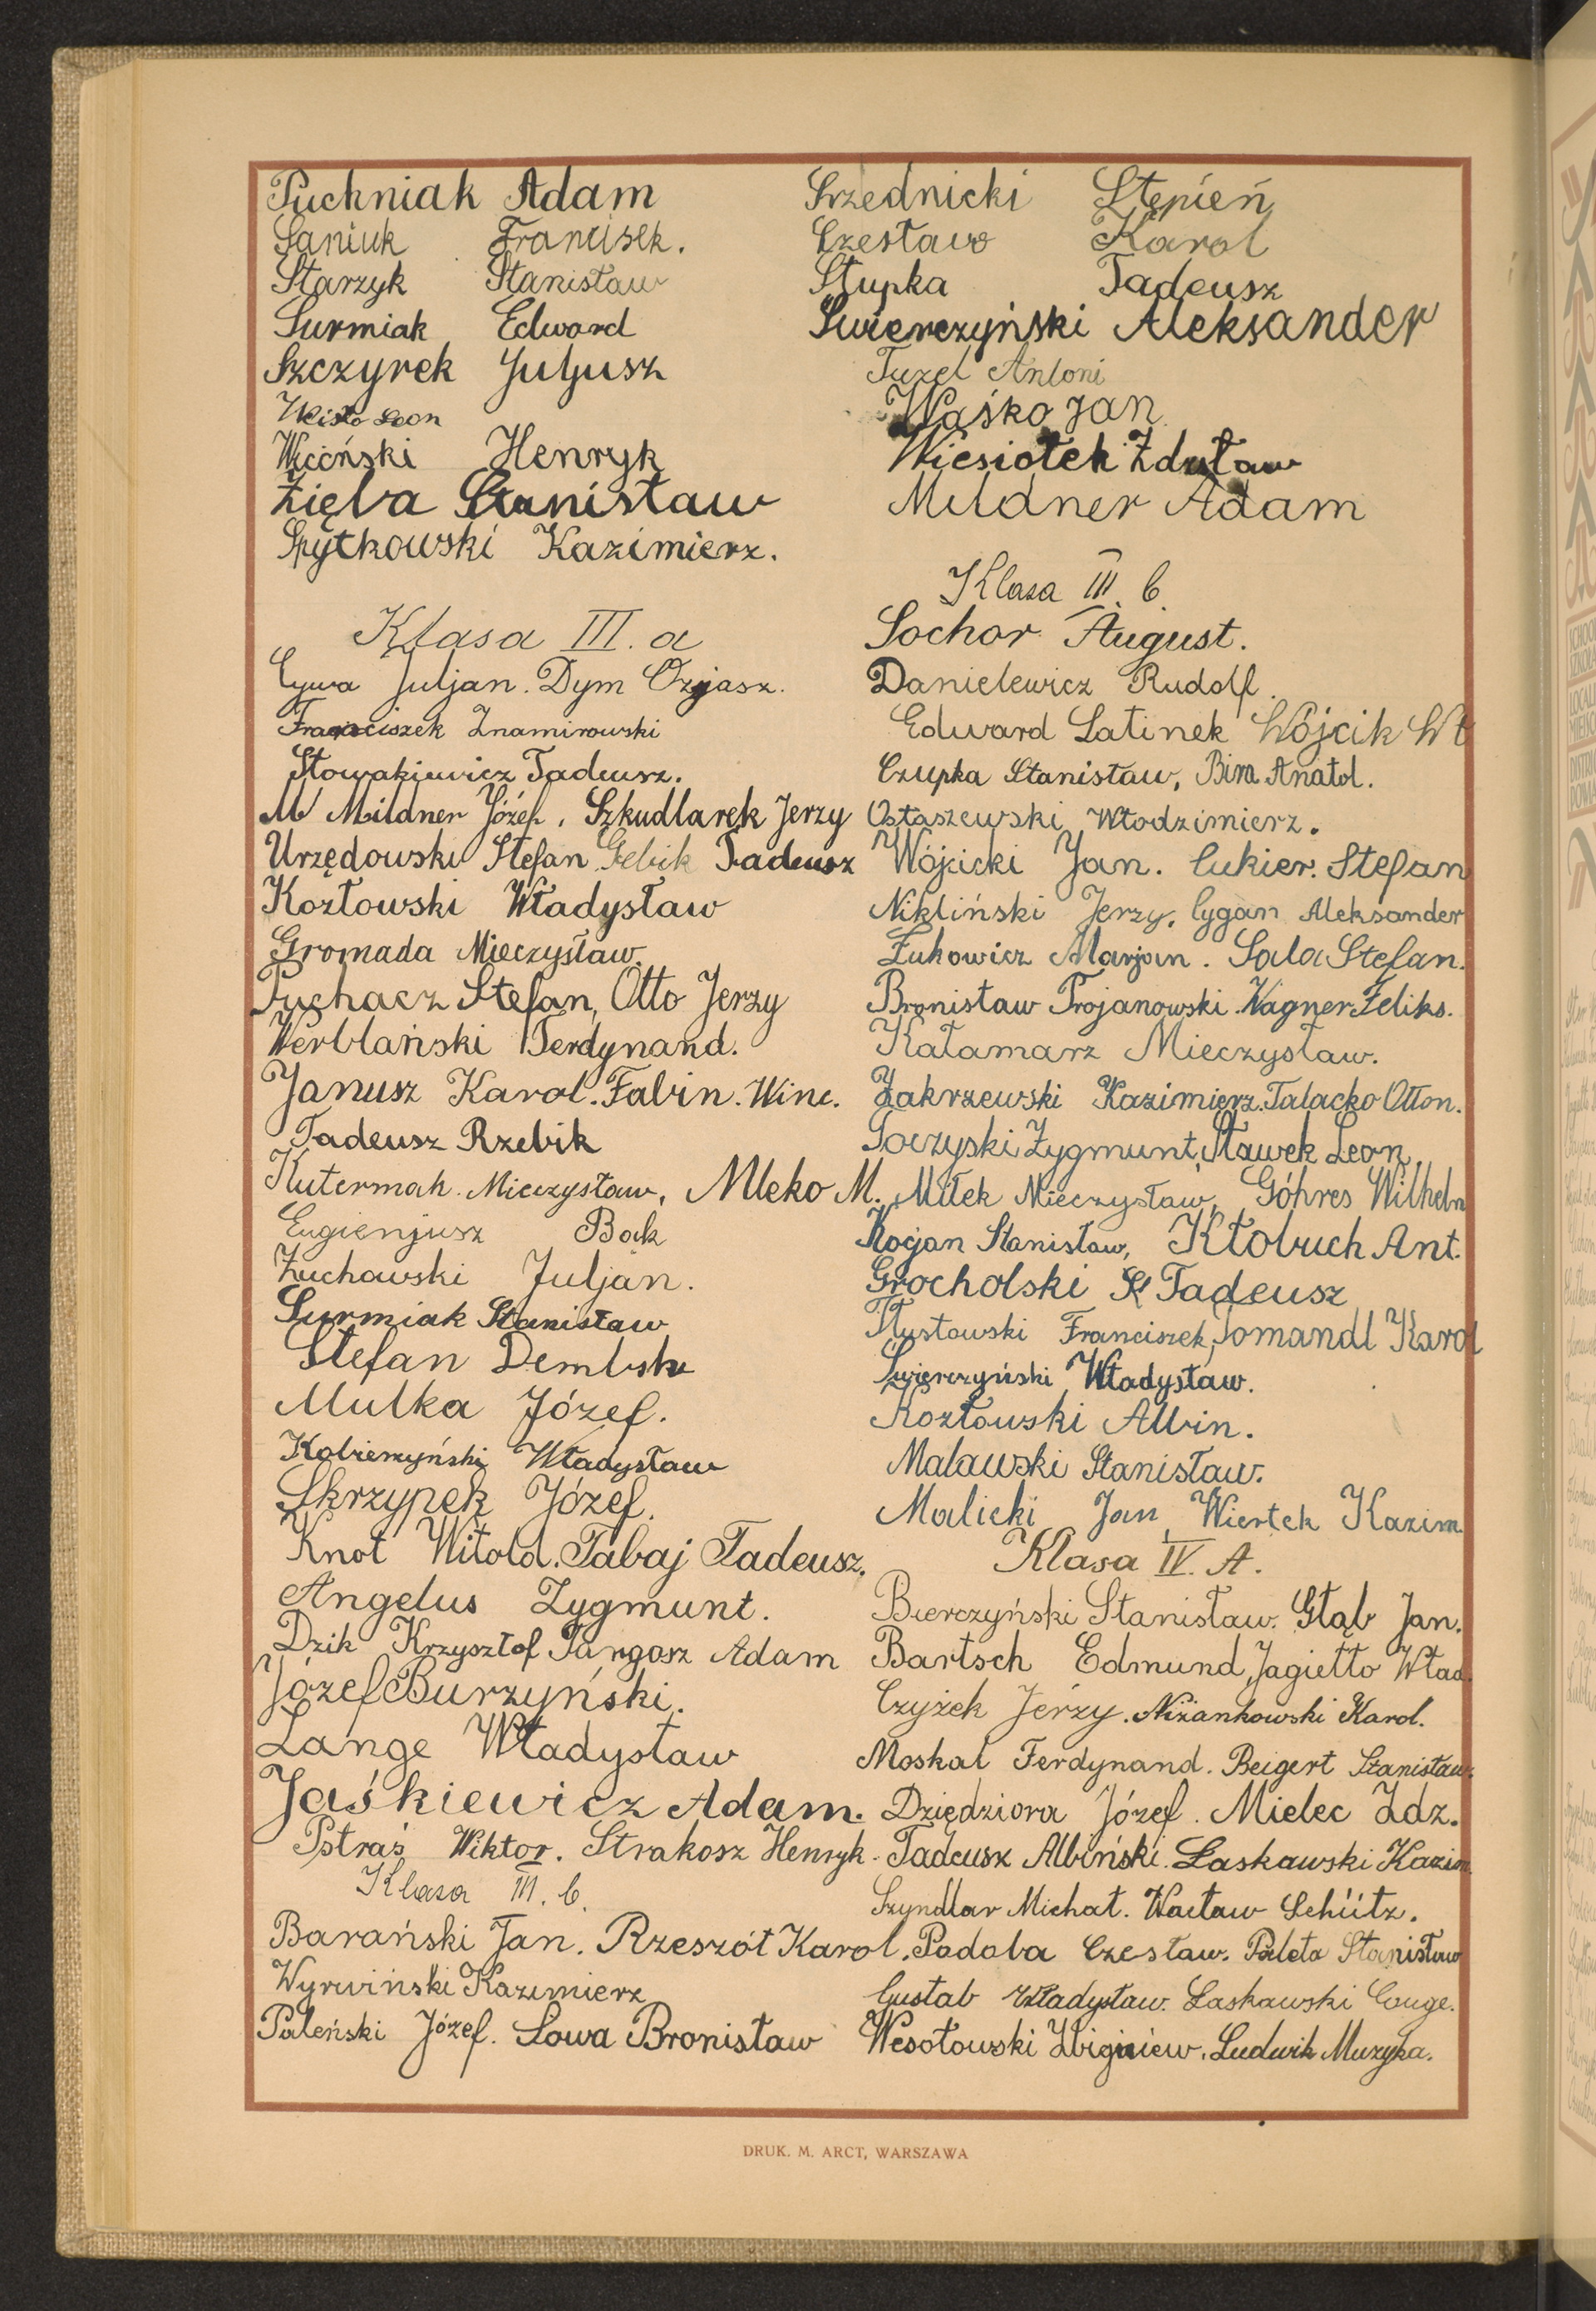 Puchniak Adam
Saniuk Francisek.
Starzyk Stanisław
Surmiak Edward
Szczyrek Juljusz
Leon
Wiciński Henryk
Zięba Stanisław
Spytkowski Kazimierz.
Klasa III. a
Cywa Juljan. Dym Ozjasz.
Franciszek Znamirowski
Słowakiewicz Tadeusz.
M Mildner Józef, Szkudlarek Jerzy
Urzędowski Stefan Gebik Tadeusz
Kozłowski Władysław
Gromada Mieczysław.
Puchacz Stefan, Otto Jerzy
Werblański Ferdynand.
Janusz Karol. Fabin. Winc.
Tadeusz Rzebik
Kutermah. Mieczysław, Mleko M.
Eugienjusz Bok
Żuchowski Juljan.
Surmiak Stanisław
Stefan Dembski
Mulka Józef.
Kobierzyński Władysław
Skrzypek Józef.
Knot Witold. Tabaj Tadeusz.
Angelus Zygmunt.
Dzik Krzysztof Targosz Adam
Józef Burzyński.
Lange Władysław
Jaśkiewicz Adam.
Pstraś Wiktor. Strakosz Henryk.
Klasa III. b.
Barański Jan. Rzeszót Karol.
Wyrwiński Kazimierz
Paleński Józef. Sowa Bronisław
Srzednicki Stępień
Czesław Karol
Słupka Tadeusz
Świerczyński Aleksander
Tuzel Antoni
Waśko Jan
Wiesiołek Zdzisław
Mildner Adam
Klasa III. b.
Sochor August.
Danielewicz Rudolf.
Edward Satinek Wójcik Wł
Czupka Stanisław, Bira Anatol.
Ostaszewski Włodzimierz.
Wójcicki Jan. Cukier. Stefan
Nikliński Jerzy, Cygan Aleksander
Żukowicz Marjan. Sala Stefan.
Bronisław Trojanowski. Wagner Feliks.
Kałamarz Mieczysław.
Zakrzewski Kazimierz. Talacko Otton.
Soczyski Zygmunt, Sławek Leon
Miłek Mieczysław, Göhres Wilhelm
Rogan Stanisław, Kłobuch Ant.
Grocholski St Tadeusz
Tłustowski Franciszek, Jomandl Karol
Świerczyński Władysław.
Kozłowski Albin.
Malawski Stanisław.
Malicki Jan, Wiertek Kazim.
Klasa IV. A.
Bierczyński Stanisław. Głąb Jan.
Bartsch Edmund, Jagiełło Wład.
Czyżek Jerzy. Niżankowski Karol.
Moskal Ferdynand. Beigert Stanisław.
Dziędziora Józef. Mielec Zdz.
Tadeusz Albiński. Laskawski Kazim.
Szyndlar Michał. Wacław Schütz.
Podoba Czesław. Paleta Stanisław
Gustab Władysław. Laskawski Euge.
Wesołowski Zbigniew. Ludwik Muzyka.
DRUK. M. ARCT, WARSZAWA